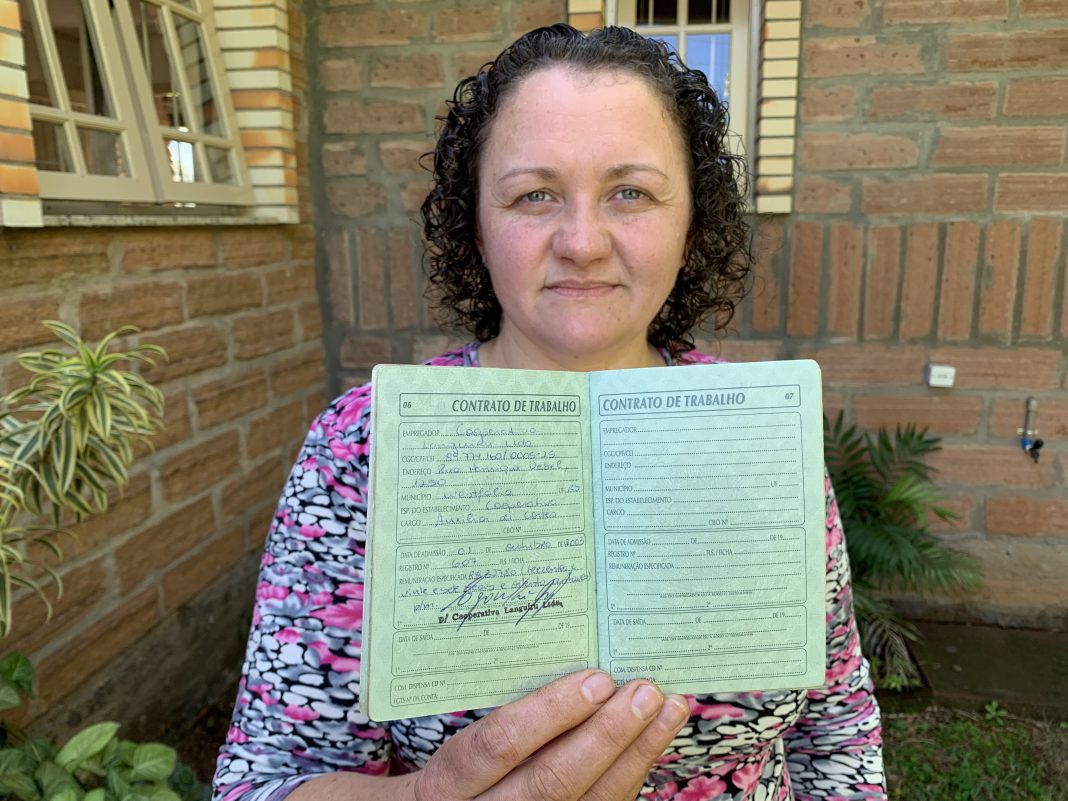 06 CONTRATO DE TRABALHO
EMPREGADOR Cooperativa
Languiru Ltda
CGC/CPF/CEI 89.774.160/0005-25
ENDEREÇO Rua Henrique Uebel,
1250
MUNICÍPIO Westfália UF RS
ESP. DO ESTABELECIMENTO Cooperativa
CARGO Auxiliar de
CBO Nº
DATA DE ADMISSÃO 01 DE outubro DE
REGISTRO Nº 607 FLS. / FICHA
REMUNERAÇÃO ESPECIFICADA
vinte e sete reais e
p/m.
D/ Cooperativa Languiru Ltda.
DATA DE SAÍDA DE DE 19
1ª 2ª
COM. DISPENSA CD Nº
FGTS Nº DA CONTA
CONTRATO DE TRABALHO 07
EMPREGADOR
CGC/CPF/CEI
ENDEREÇO
MUNICÍPIO UF
ESP. DO ESTABELECIMENTO
CARGO
CBO Nº
DATA DE ADMISSÃO DE DE 19
REGISTRO Nº FLS. / FICHA
REMUNERAÇÃO ESPECIFICADA
1ª 2ª
DATA DE SAÍDA DE DE 19
1ª 2ª
COM. DISPENSA CD Nº
FGTS Nº DA CONTA